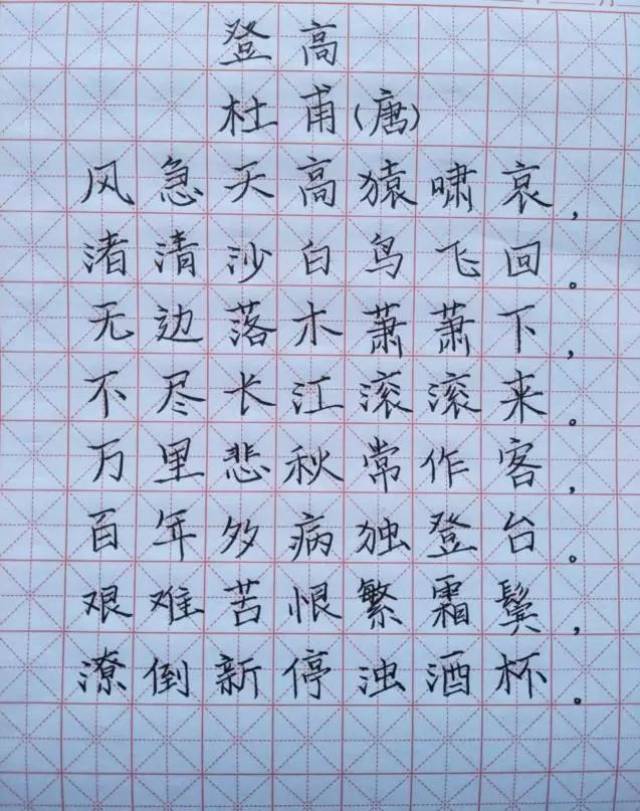 登高
杜甫(唐)
风急天高猿啸哀,
渚清沙白鸟飞回。
无边落木萧萧下,
不尽长江滚滚来。
万里悲秋常作客,
百年多病独登台。
艰难苦恨繁霜鬓,
潦倒新停浊酒杯。